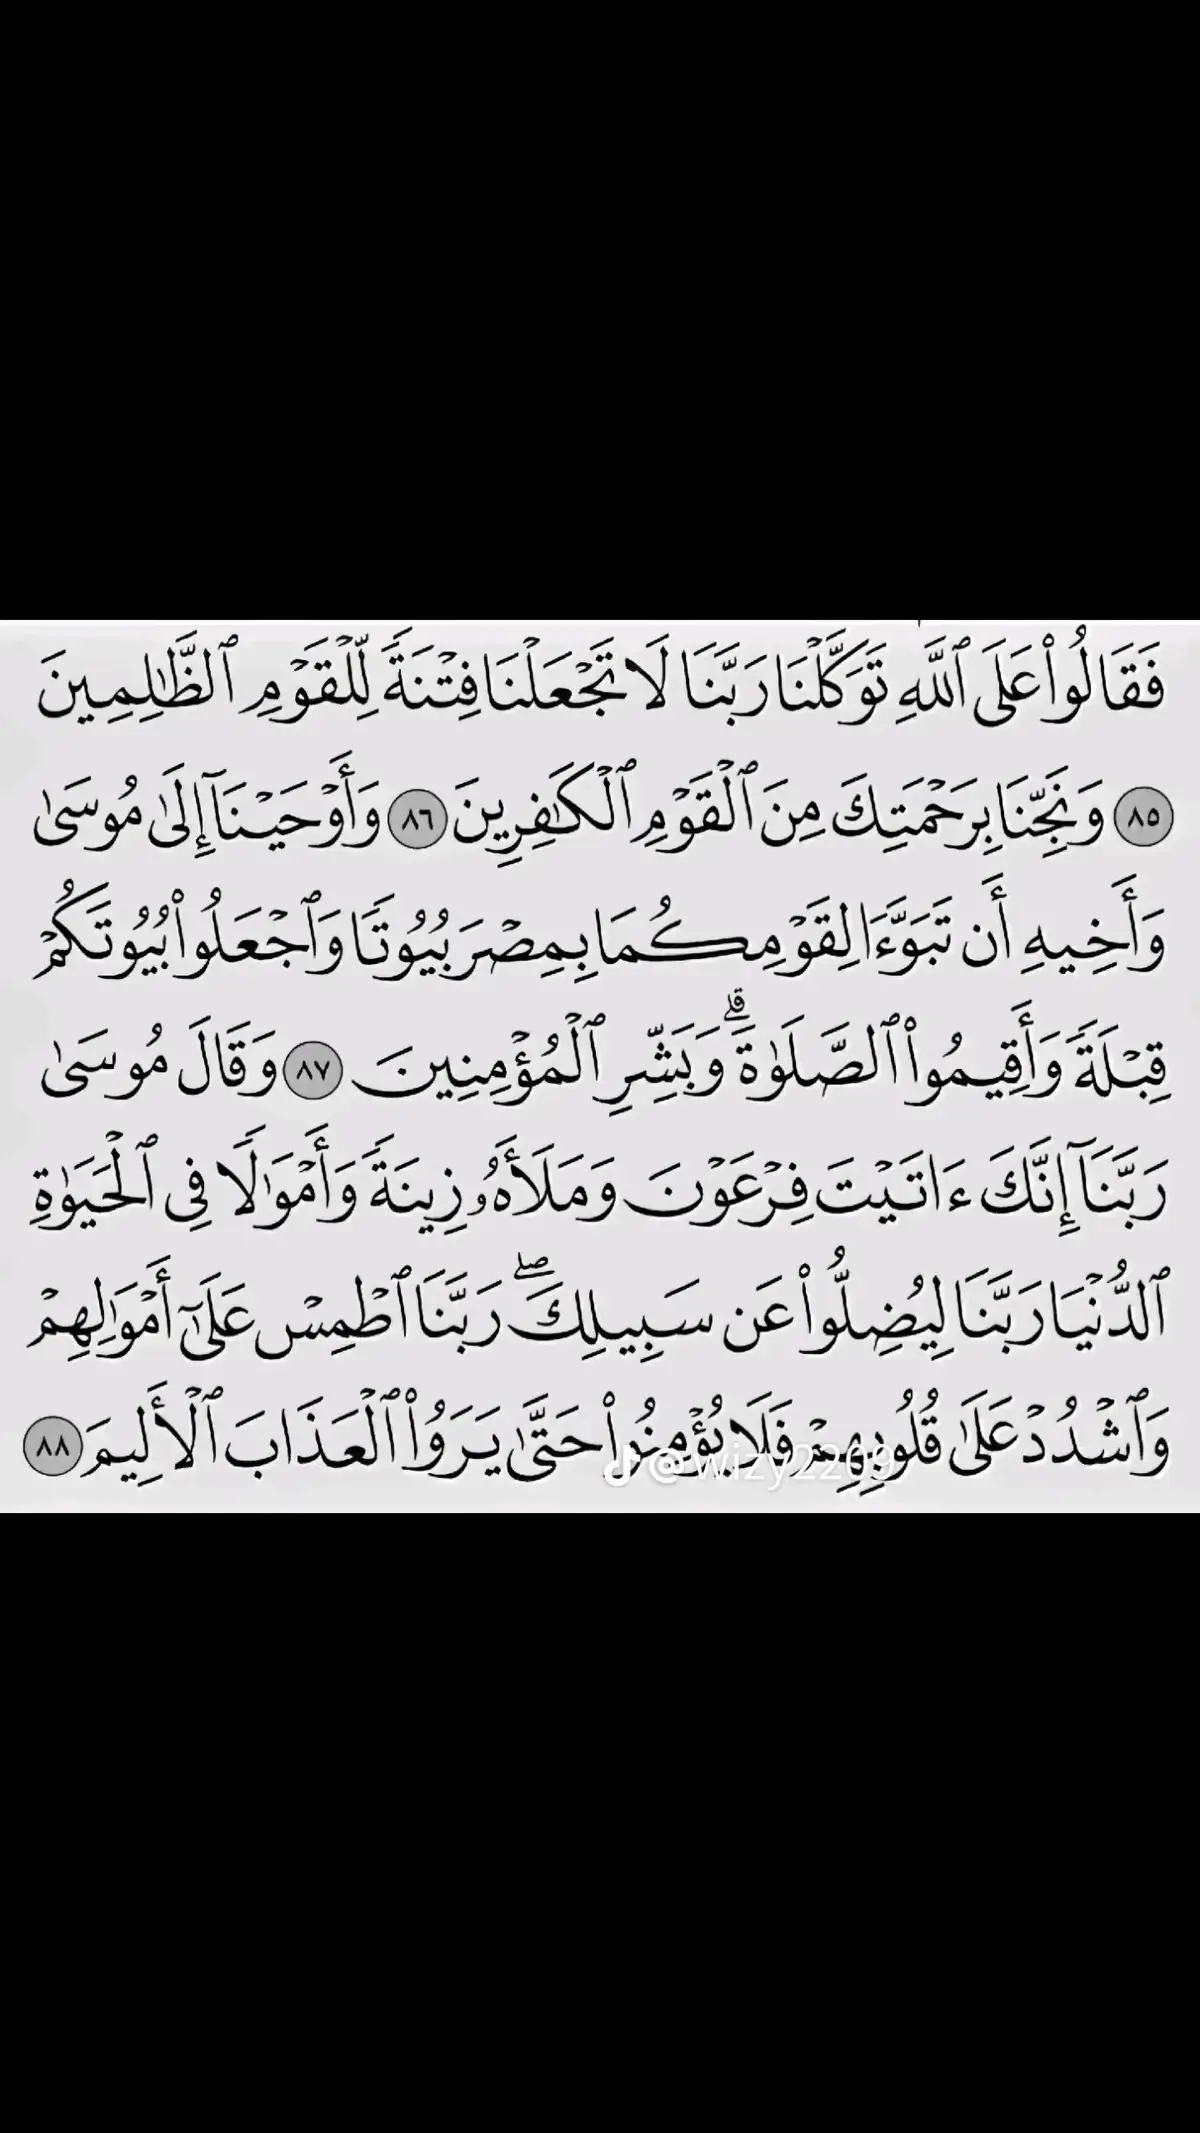 فَقَالُوا۟ عَلَى ٱللَّهِ تَوَكَّلْنَا رَبَّنَا لَا تَجْعَلْنَا فِتْنَةً لِّلْقَوْمِ ٱلظَّٰلِمِينَ
٨٥ وَنَجِّنَا بِرَحْمَتِكَ مِنَ ٱلْقَوْمِ ٱلْكَٰفِرِينَ ٨٦ وَأَوْحَيْنَآ إِلَىٰ مُوسَىٰ
وَأَخِيهِ أَن تَبَوَّءَا لِقَوْمِكُمَا بِمِصْرَ بُيُوتًا وَٱجْعَلُوا۟ بُيُوتَكُمْ
قِبْلَةً وَأَقِيمُوا۟ ٱلصَّلَوٰةَ ۗ وَبَشِّرِ ٱلْمُؤْمِنِينَ ٨٧ وَقَالَ مُوسَىٰ
رَبَّنَآ إِنَّكَ ءَاتَيْتَ فِرْعَوْنَ وَمَلَأَهُۥ زِينَةً وَأَمْوَٰلًا فِى ٱلْحَيَوٰةِ
ٱلدُّنْيَا رَبَّنَا لِيُضِلُّوا۟ عَن سَبِيلِكَ ۖ رَبَّنَا ٱطْمِسْ عَلَىٰٓ أَمْوَٰلِهِمْ
وَٱشْدُدْ عَلَىٰ قُلُوبِهِمْ فَلَا يُؤْمِنُوا۟ حَتَّىٰ يَرَوُا۟ ٱلْعَذَابَ ٱلْأَلِيمَ ٨٨
@wizy2209